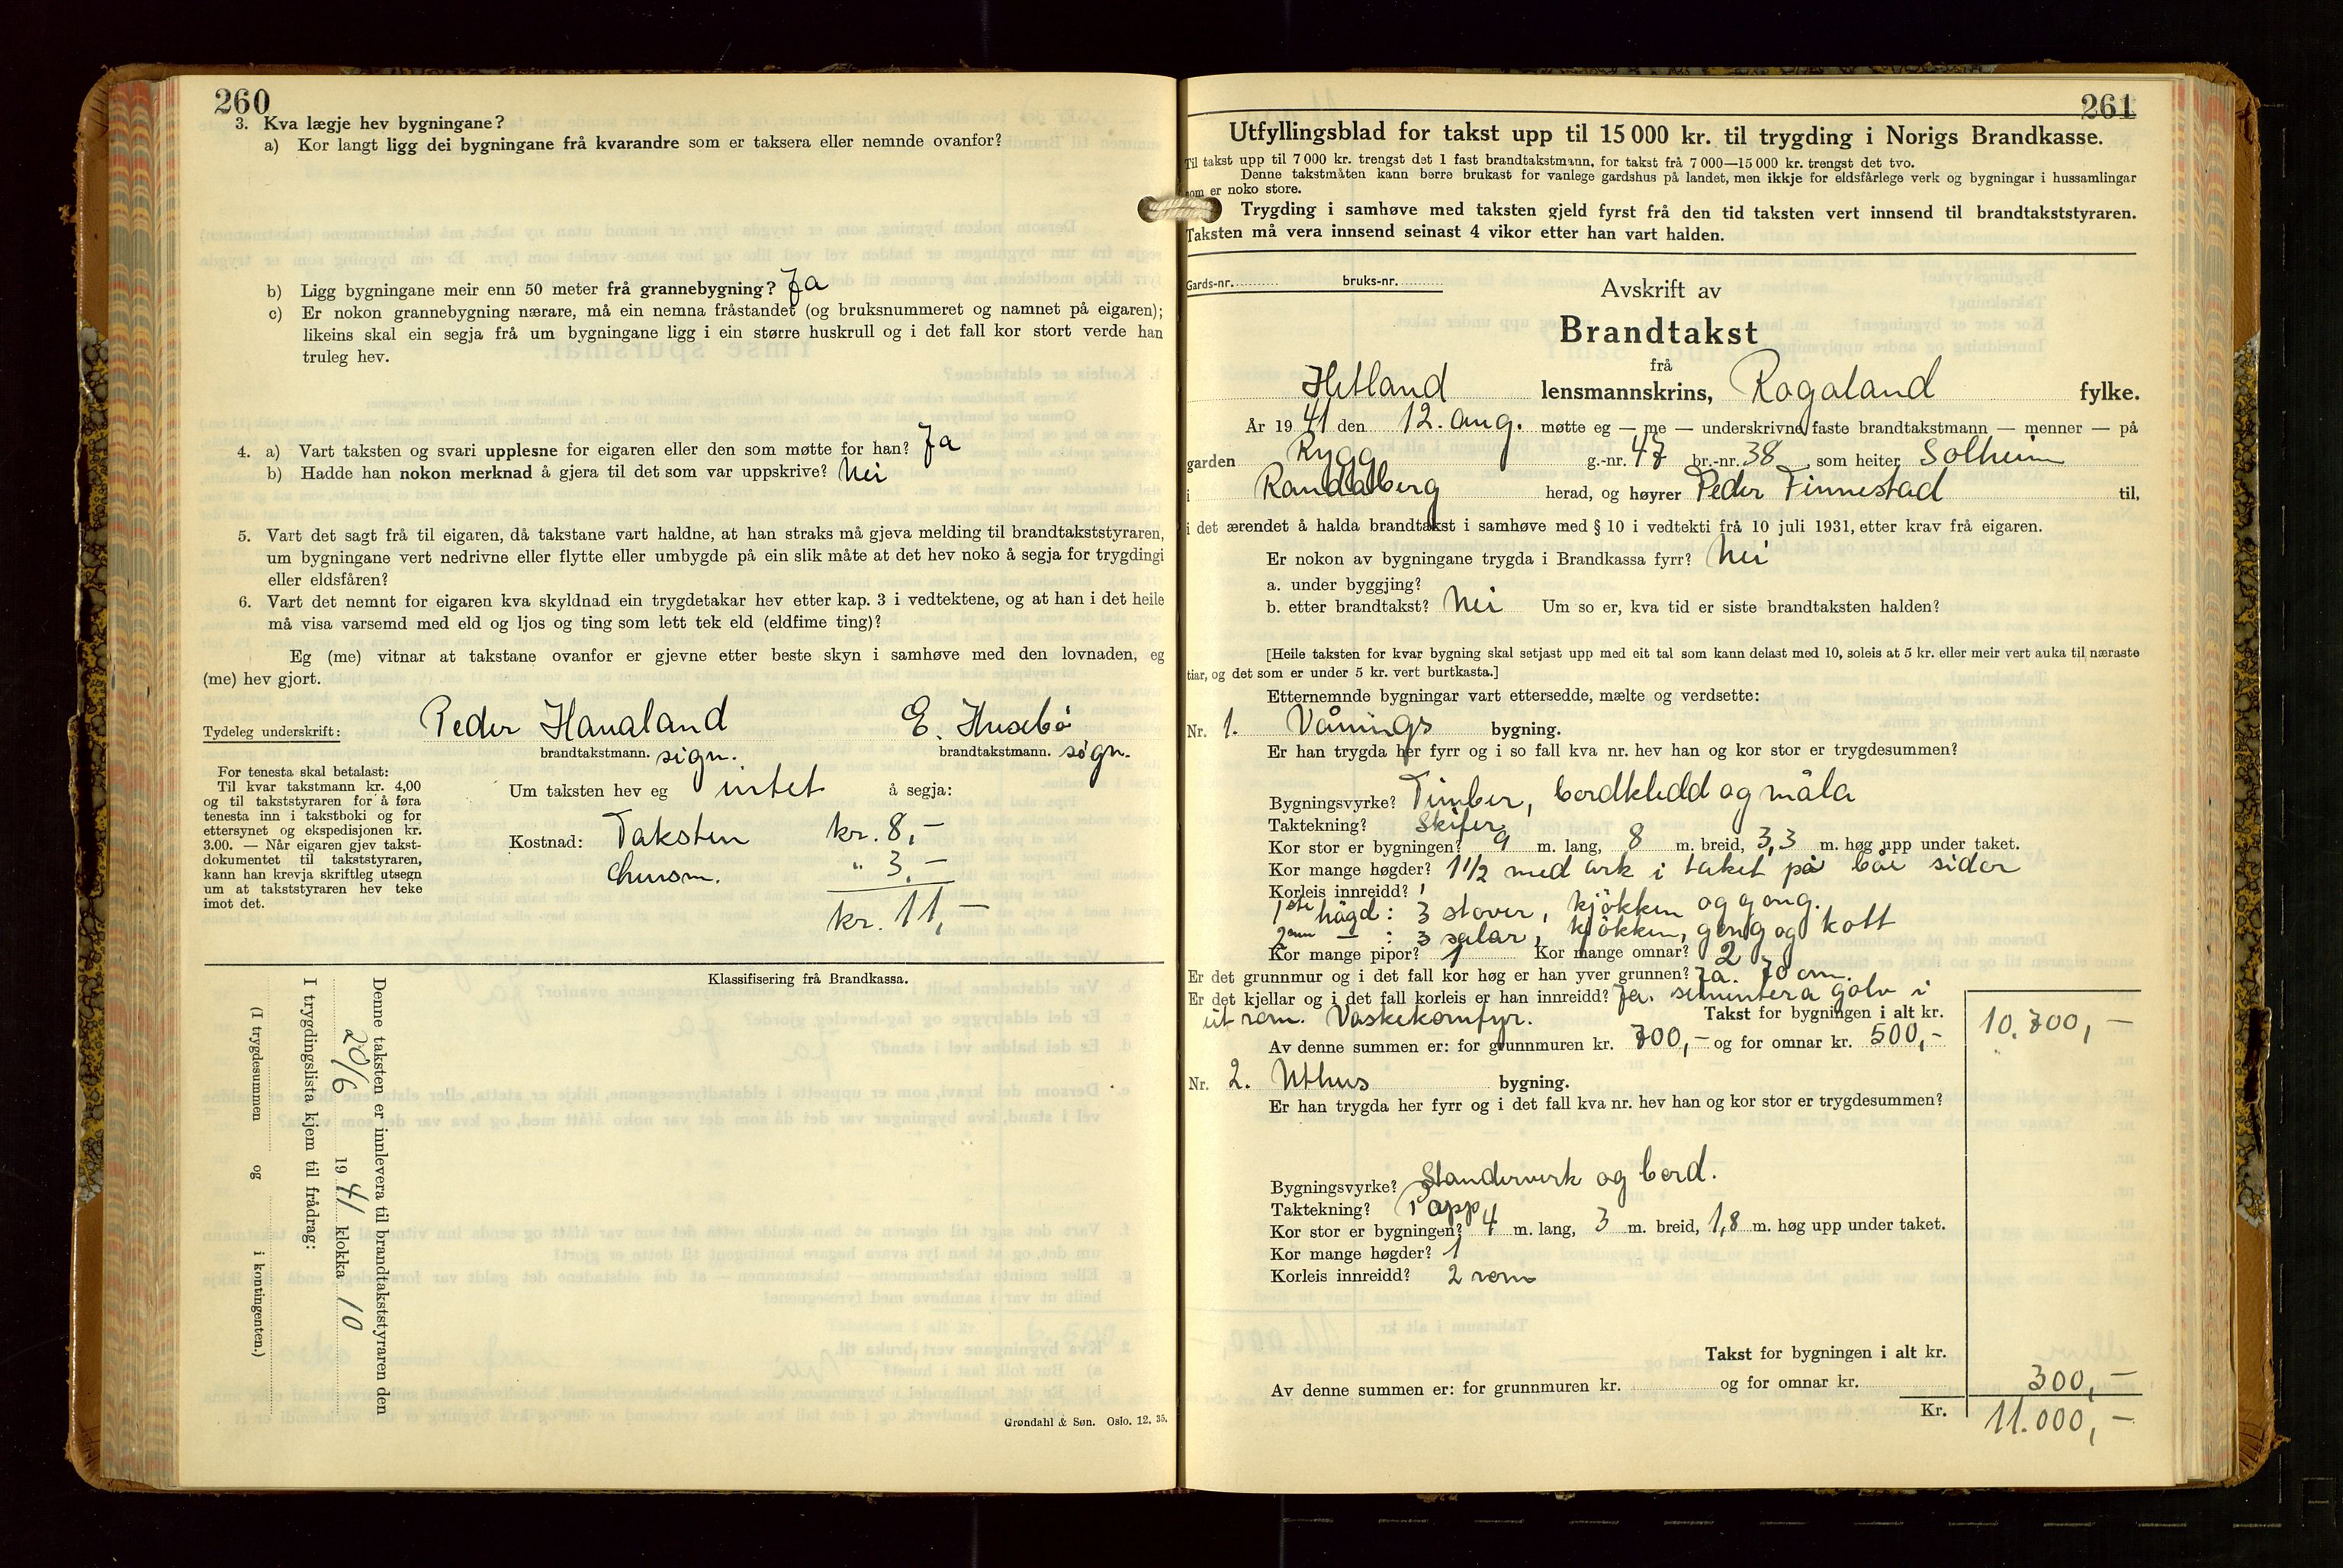 260
3. Kva lægje hev bygningane?
a) Kor langt ligg dei bygningane frå kvarandre som er taksera eller nemnde ovanfor?
b) Ligg bygningane meir enn 50 meter frå grannebygning? Ja
c) Er nokon grannebygning nærare, må ein nemna fråstandet (og bruksnummeret og namnet på eigaren);
likeins skal ein segja frå um bygningane ligg i ein større huskrull og i det fall kor stort verde han
truleg hev.
4. a) Vart taksten og svari upplesne for eigaren eller den som møtte for han? Ja
b) Hadde han nokon merknad å gjera til det som var uppskrive? Nei
5. Vart det sagt frå til eigaren, då takstane vart haldne, at han straks må gjeva melding til brandtakststyraren,
um bygningane vert nedrivne eller flytte eller umbygde på ein slik måte at det hev noko å segja for trygdingi
eller eldsfåren?
6. Vart det nemnt for eigaren kva skyldnad ein trygdetakar hev etter kap. 3 i vedtektene, og at han i det heile
må visa varsemd med eld og ljos og ting som lett tek eld (eldfime ting)?
Eg (me) vitnar at takstane ovanfor er gjevne etter beste skyn i samhøve med den lovnaden, eg
(me) hev gjort.
Tydeleg underskrift: Peder Haualand E. Husebø
brandtakstmann. sign. brandtakstmann. sign.
For tenesta skal betalast:
Til kvar takstmann kr. 4,00
og til takststyraren for å føra
tenesta inn i takstboki og for
ettersynet og ekspedisjonen kr.
3.00. — Når eigaren gjev takst-
dokumentet til takststyraren,
kann han krevja skriftleg utsegn
um at takststyraren hev teke
imot det.
Um taksten hev eg intet å segja:
Kostnad: Taksten kr. 8,-
" 3.-
kr. 11,-
Klassifisering frå Brandkassa.
Denne taksten er innlevera til brandtakststyraren den
20/6 1941 klokka 10
I trygdingslista kjem til frådrag:
(I trygdesummen og i kontingenten.)
Grøndahl & Søn. Oslo. 12. 35.
261
Utfyllingsblad for takst upp til 15 000 kr. til trygding i Norigs Brandkasse.
Til takst upp til 7 000 kr. trengst det 1 fast brandtakstmann, for takst frå 7 000—15 000 kr. trengst det tvo.
Denne takstmåten kann berre brukast for vanlege gardshus på landet, men ikkje for eldsfårlege verk og bygningar i hussamlingar
som er noko store.
Trygding i samhøve med taksten gjeld fyrst frå den tid taksten vert innsend til brandtakststyraren.
Taksten må vera innsend seinast 4 vikor etter han vart halden.
Gards-nr. bruks-nr.
Avskrift av
Brandtakst
frå
Hetland lensmannskrins, Rogaland fylke.
År 1941 den 12. aug. møtte eg — me — underskrivne faste brandtakstmann — menner — på
garden Rygg g.-nr. 47 br.-nr. 38 som heiter Solheim
i Randaberg herad, og høyrer Peder Finnestad til,
i det ærendet å halda brandtakst i samhøve med § 10 i vedtekti frå 10 juli 1931, etter krav frå eigaren.
Er nokon av bygningane trygda i Brandkassa fyrr? Nei
a. under byggjing?
b. etter brandtakst? Nei Um so er, kva tid er siste brandtaksten halden?
[Heile taksten for kvar bygning skal setjast upp med eit tal som kann delast med 10, soleis at 5 kr. eller meir vert auka til næraste
tiar, og det som er under 5 kr. vert burtkasta.]
Etternemnde bygningar vart ettersedde, mælte og verdsette:
Nr. 1. Vånings bygning.
Er han trygda her fyrr og i so fall kva nr. hev han og kor stor er trygdesummen?
Bygningsvyrke? Timber, bordkledd og måla
Taktekning? Skifer
Kor stor er bygningen? 9 m. lang, 8 m. breid, 3,3 m. høg upp under taket.
Kor mange høgder? 1½ med ark i taket på båe sider
Korleis innreidd?
1ste högd: 3 stover, kjökken og gong.
2enn — : 3 salar, kjökken, gong og kott
Kor mange pipor? 1 Kor mange omnar? 2
Er det grunnmur og i det fall kor høg er han yver grunnen? Ja. 70 cm.
Er det kjellar og i det fall korleis er han innreidd? Ja. sementera golv i
eit rom. Vaskekomfyr. Takst for bygningen i alt kr. 10.700,-
Av denne summen er: for grunnmuren kr. 700,- og for omnar kr. 500,-
Nr. 2. Uthus bygning.
Er han trygda her fyrr og i det fall kva nr. hev han og kor stor er trygdesummen?
Bygningsvyrke? Standerverk og bord.
Taktekning? Papp
Kor stor er bygningen? 4 m. lang, 3 m. breid, 1,8 m. høg upp under taket.
Kor mange høgder? 1
Korleis innreidd? 2 rom
Takst for bygningen i alt kr. 300,-
Av denne summen er: for grunnmuren kr. og for omnar kr.
Kr. 11.000,-